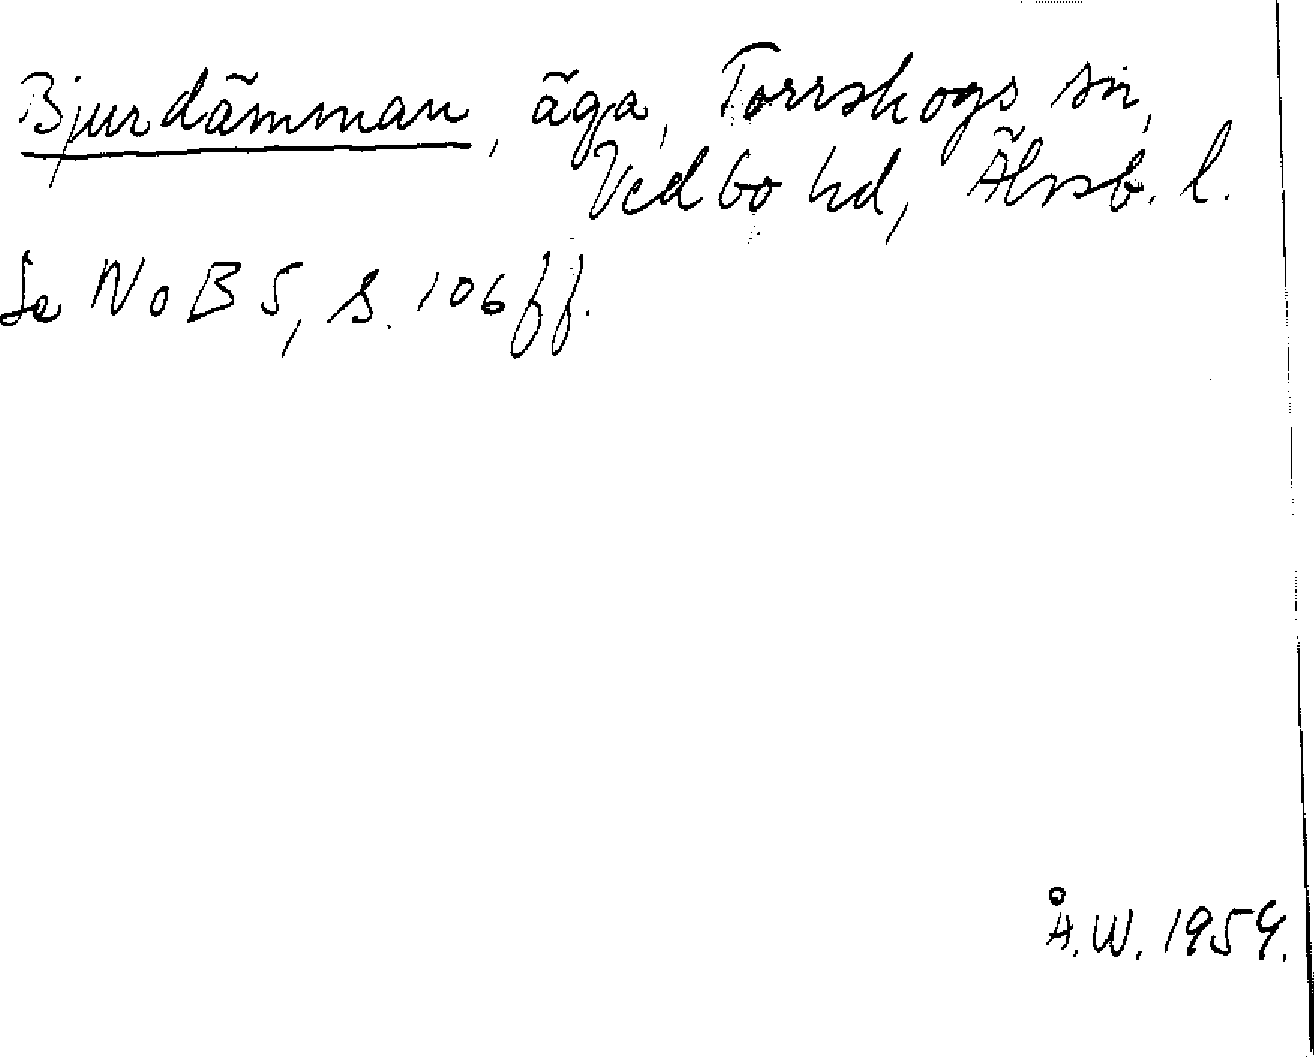 Bjurdämman, äga, Torrskogs sn,
Vedbo hd, Älvsb. l.
Se NoB 5, s. 106 ff.
Å.W. 1954.